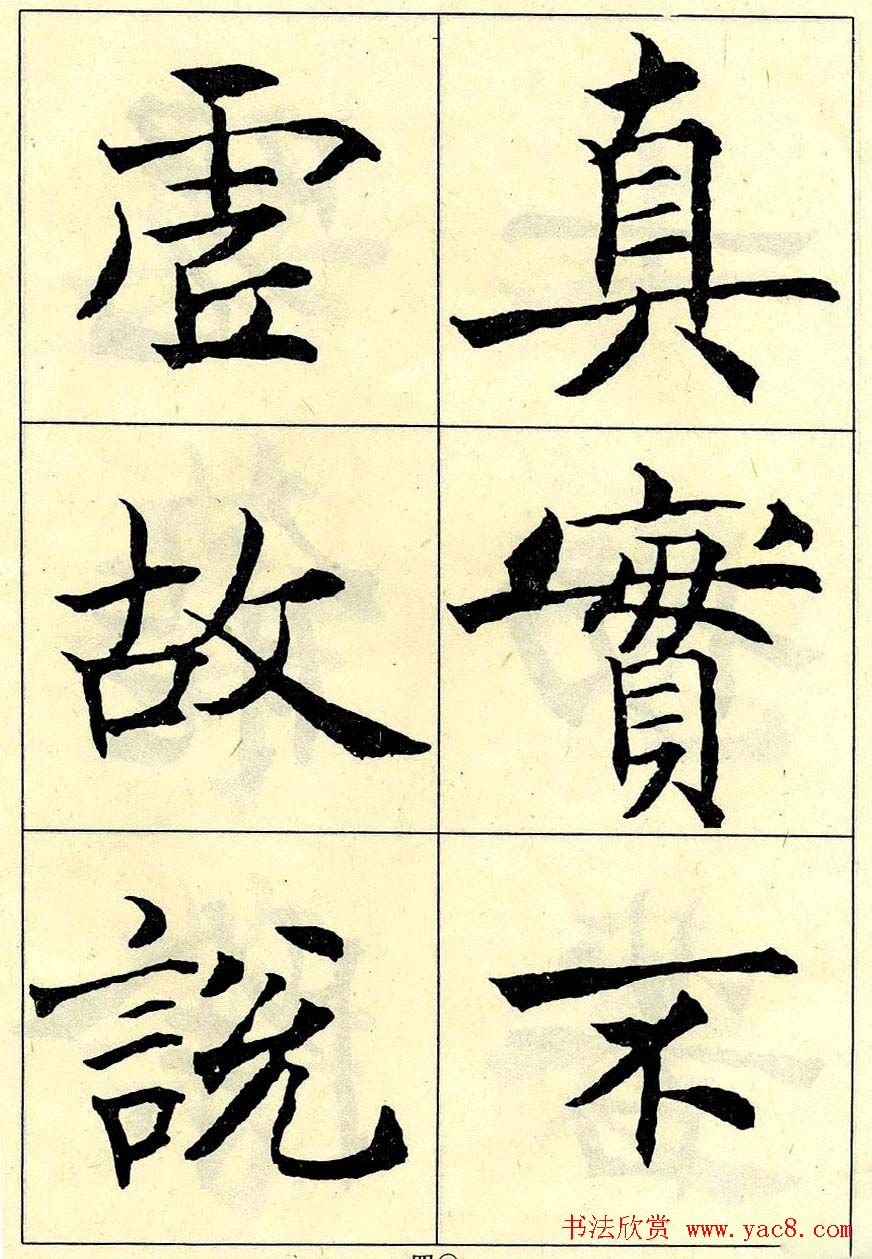 真實不
虛故說
书法欣赏 www.yac8.com
四〇